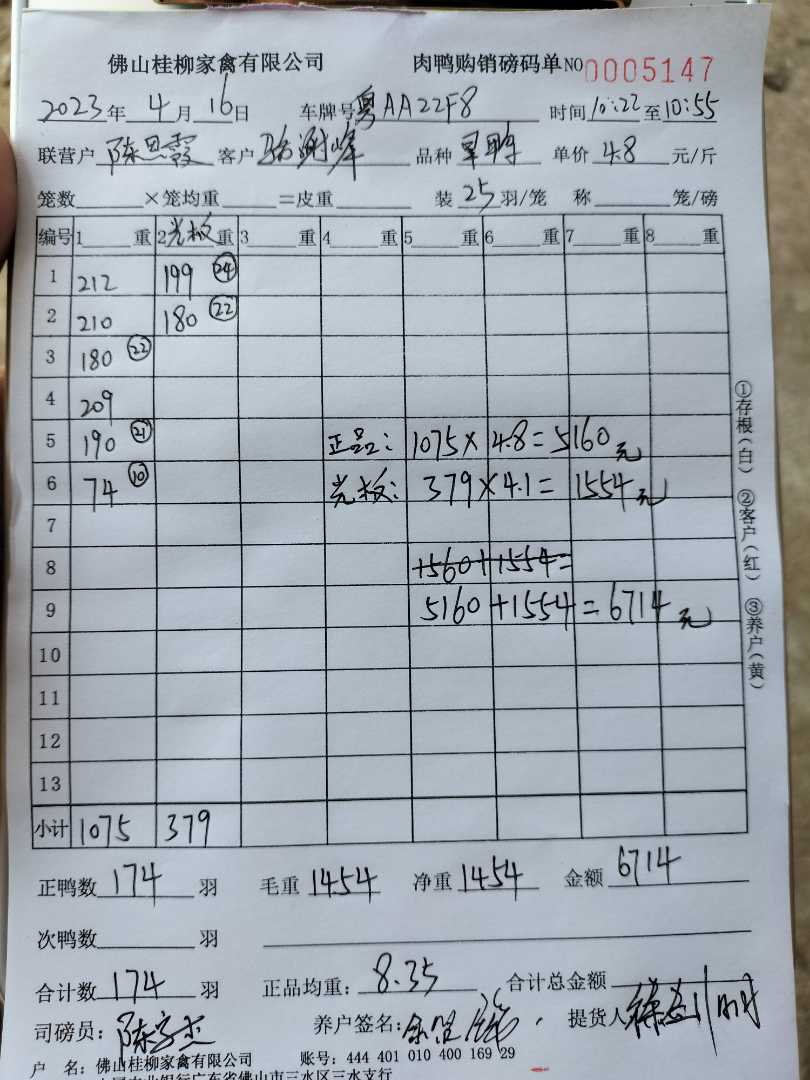 佛山桂柳家禽有限公司 肉鸭购销磅码单 NO 0005147
2023年 4月 16日 车牌号 粤AA22F8 时间 10:22 至 10:55
联营户 陈思霞 客户 品种 单价 4.8 元/斤
笼数 ×笼均重 =皮重 装 25 羽/笼 称 笼/磅
编号 1 重 2 光板 重 3 重 4 重 5 重 6 重 7 重 8 重
1 212 199 24
2 210 180 22
3 180 22
4 209
5 190 21 正品: 1075×4.8=5160元
6 74 10 光板: 379×4.1=1554元
7
8 +560+1554=
9 5160+1554=6714元
10
11
12
13
小计 1075 379
①存根(白) ②客户(红) ③养户(黄)
正鸭数 174 羽 毛重 1454 净重 1454 金额 6714
次鸭数 羽
合计数 174 羽 正品均重: 8.35 合计总金额
司磅员: 养户签名: 提货人
户 名: 佛山桂柳家禽有限公司 账号: 444 401 010 400 169 29
中国农业银行广东省佛山市三水区三水支行